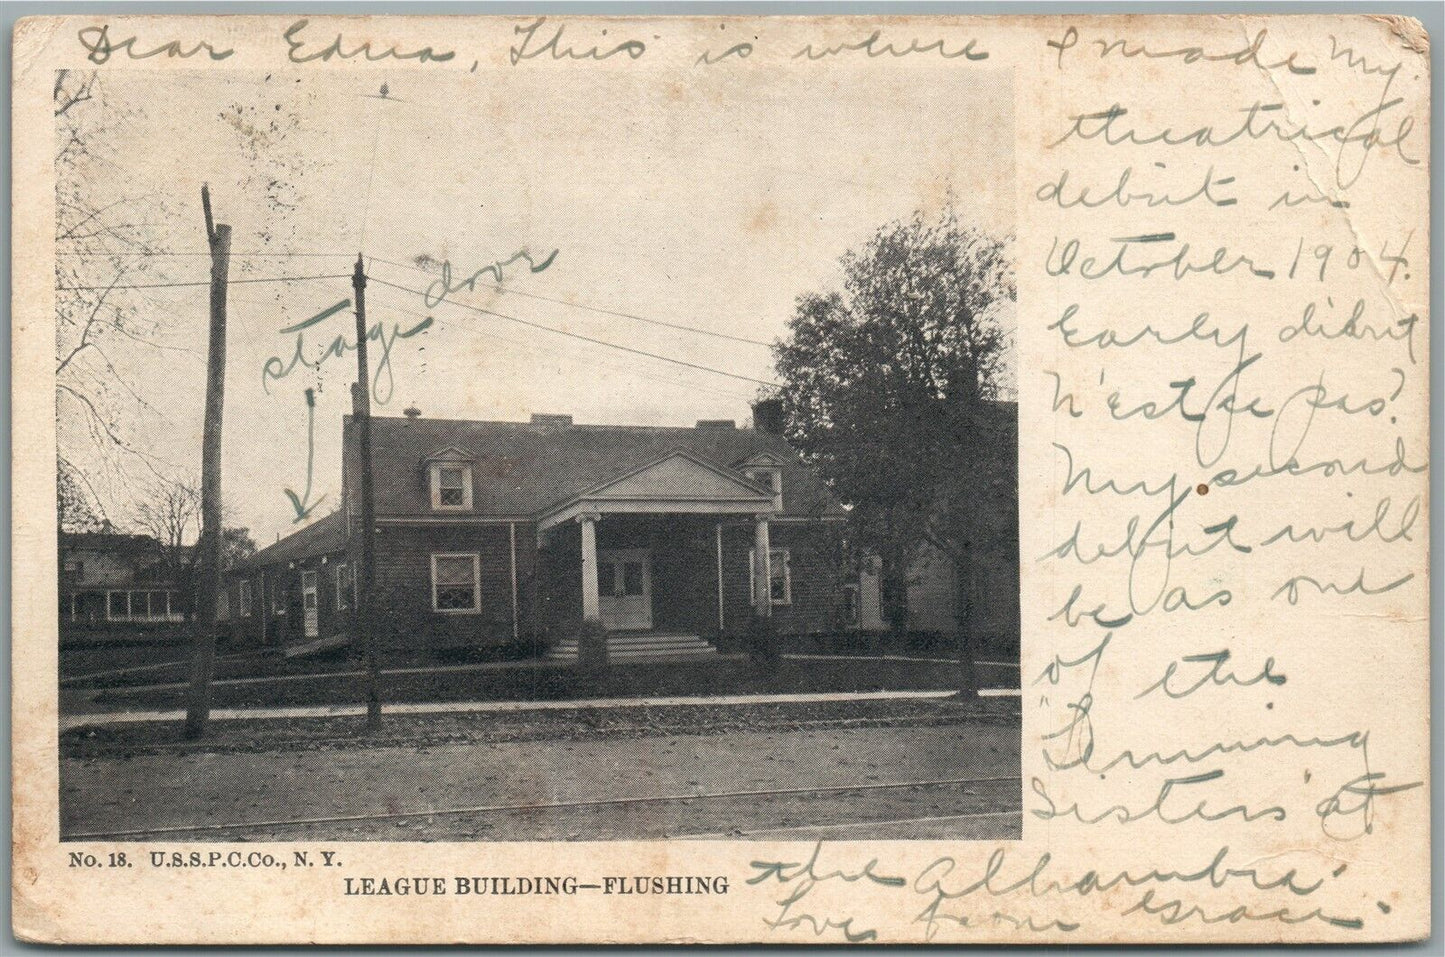 Dear Edna, This is where I made my
theatrical
debut in
October 1904.
Early debut
n'est ce pas?
My second
debut will
be as one
of the
"
Sisters" at
the Alhambra.
Love from Grace.
stage door
No. 18. U.S.S.P.C.Co., N. Y.
LEAGUE BUILDING—FLUSHING